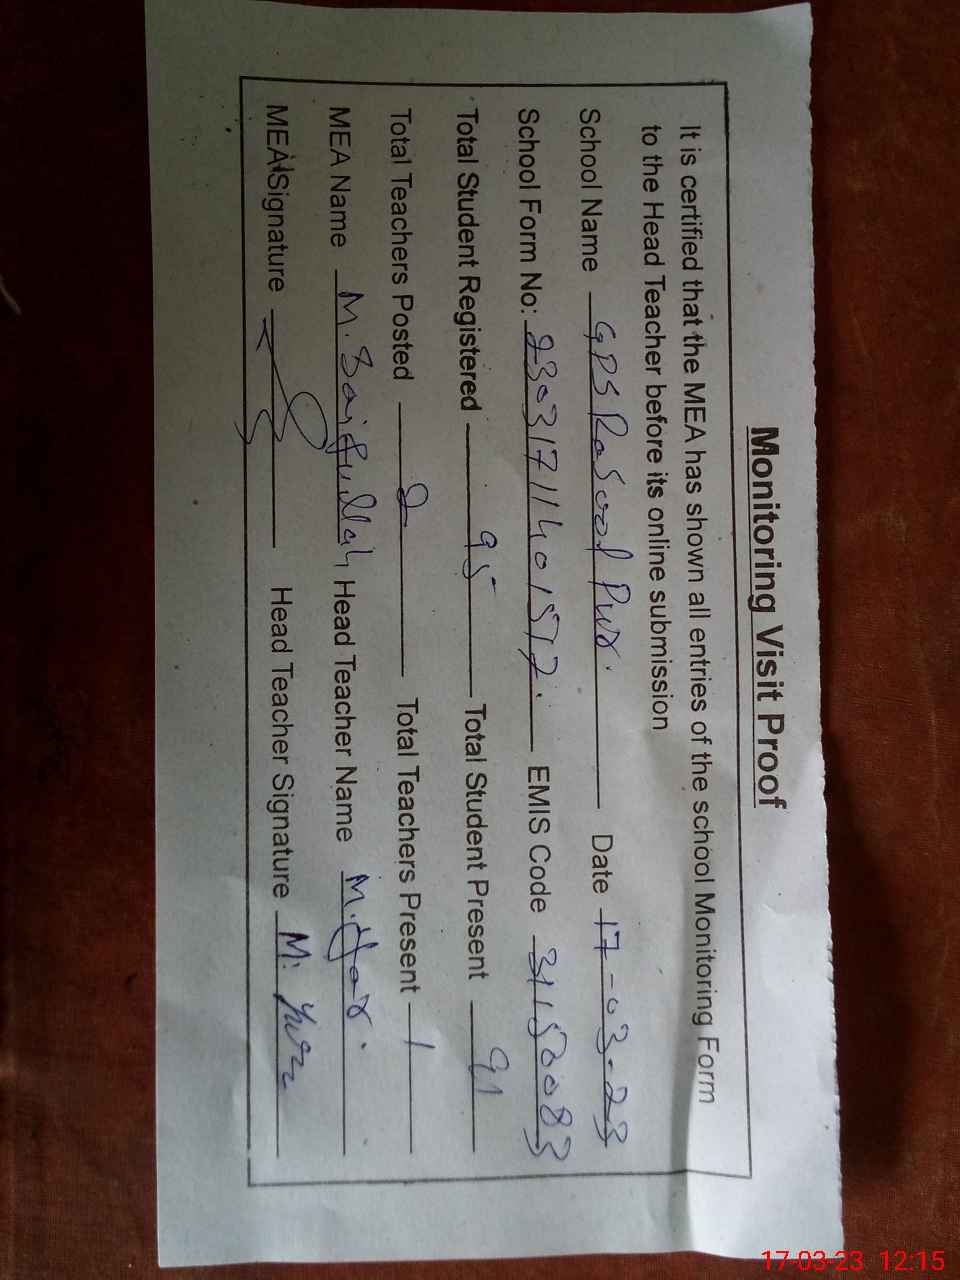 Monitoring Visit Proof
It is certified that the MEA has shown all entries of the school Monitoring Form
to the Head Teacher before its online submission
School Name GPS Rasool Pur. Date 17-03-23
School Form No: 23031711401572. EMIS Code 31150083
Total Student Registered 95 Total Student Present 91
Total Teachers Posted 2 Total Teachers Present 1
MEA Name M. Saifullah Head Teacher Name M.
MEA Signature Head Teacher Signature M.
17-03-23 12:15